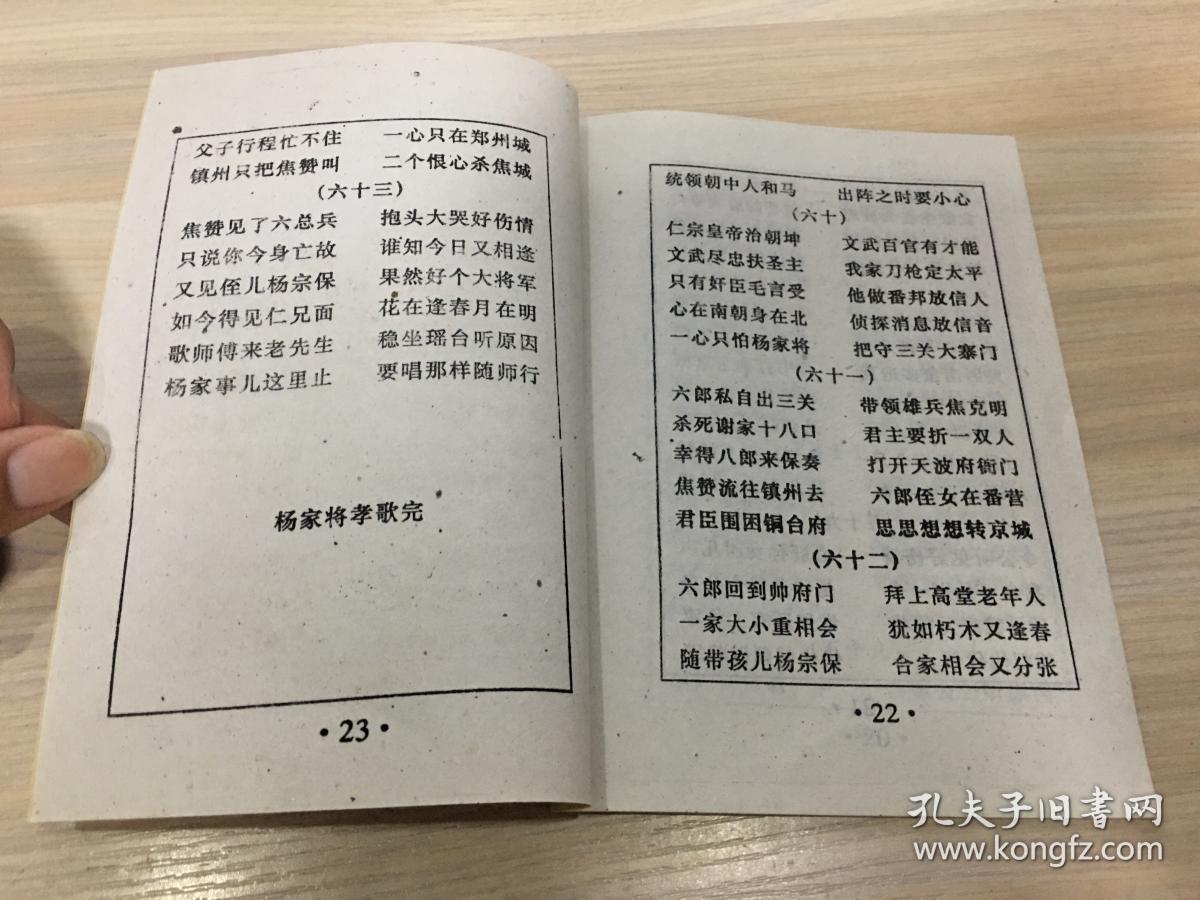 统领朝中人和马 出阵之时要小心
(六十)
仁宗皇帝治朝坤 文武百官有才能
文武尽忠扶圣主 我家刀枪定太平
只有奸臣毛言受 他做番邦放信人
心在南朝身在北 侦探消息放信音
一心只怕杨家将 把守三关大寨门
(六十一)
六郎私自出三关 带领雄兵焦克明
杀死谢家十八口 君主要折一双人
幸得八郎来保奏 打开天波府衙门
焦赞流往镇州去 六郎侄女在番营
君臣围困铜台府 思思想想转京城
(六十二)
六郎回到帅府门 拜上高堂老年人
一家大小重相会 犹如朽木又逢春
随带孩儿杨宗保 合家相会又分张
·22·
父子行程忙不住 一心只在郑州城
镇州只把焦赞叫 二个恨心杀焦城
(六十三)
焦赞见了六总兵 抱头大哭好伤情
只说你今身亡故 谁知今日又相逢
又见侄儿杨宗保 果然好个大将军
如今得见仁兄面 花在逢春月在明
歌师傅来老先生 稳坐瑶台听原因
杨家事儿这里止 要唱那样随师行
杨家将孝歌完
·23·
孔夫子旧書网
www.kongfz.com